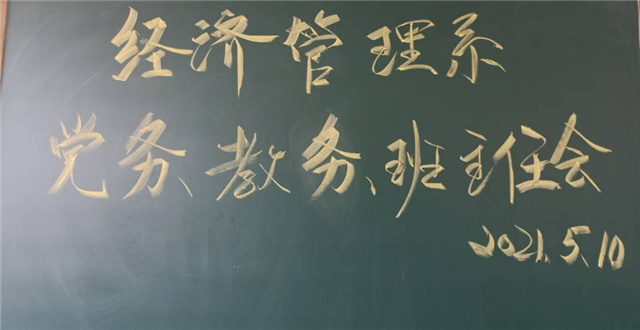 经济管理系
党务、教务、班主任会
2021.5.10